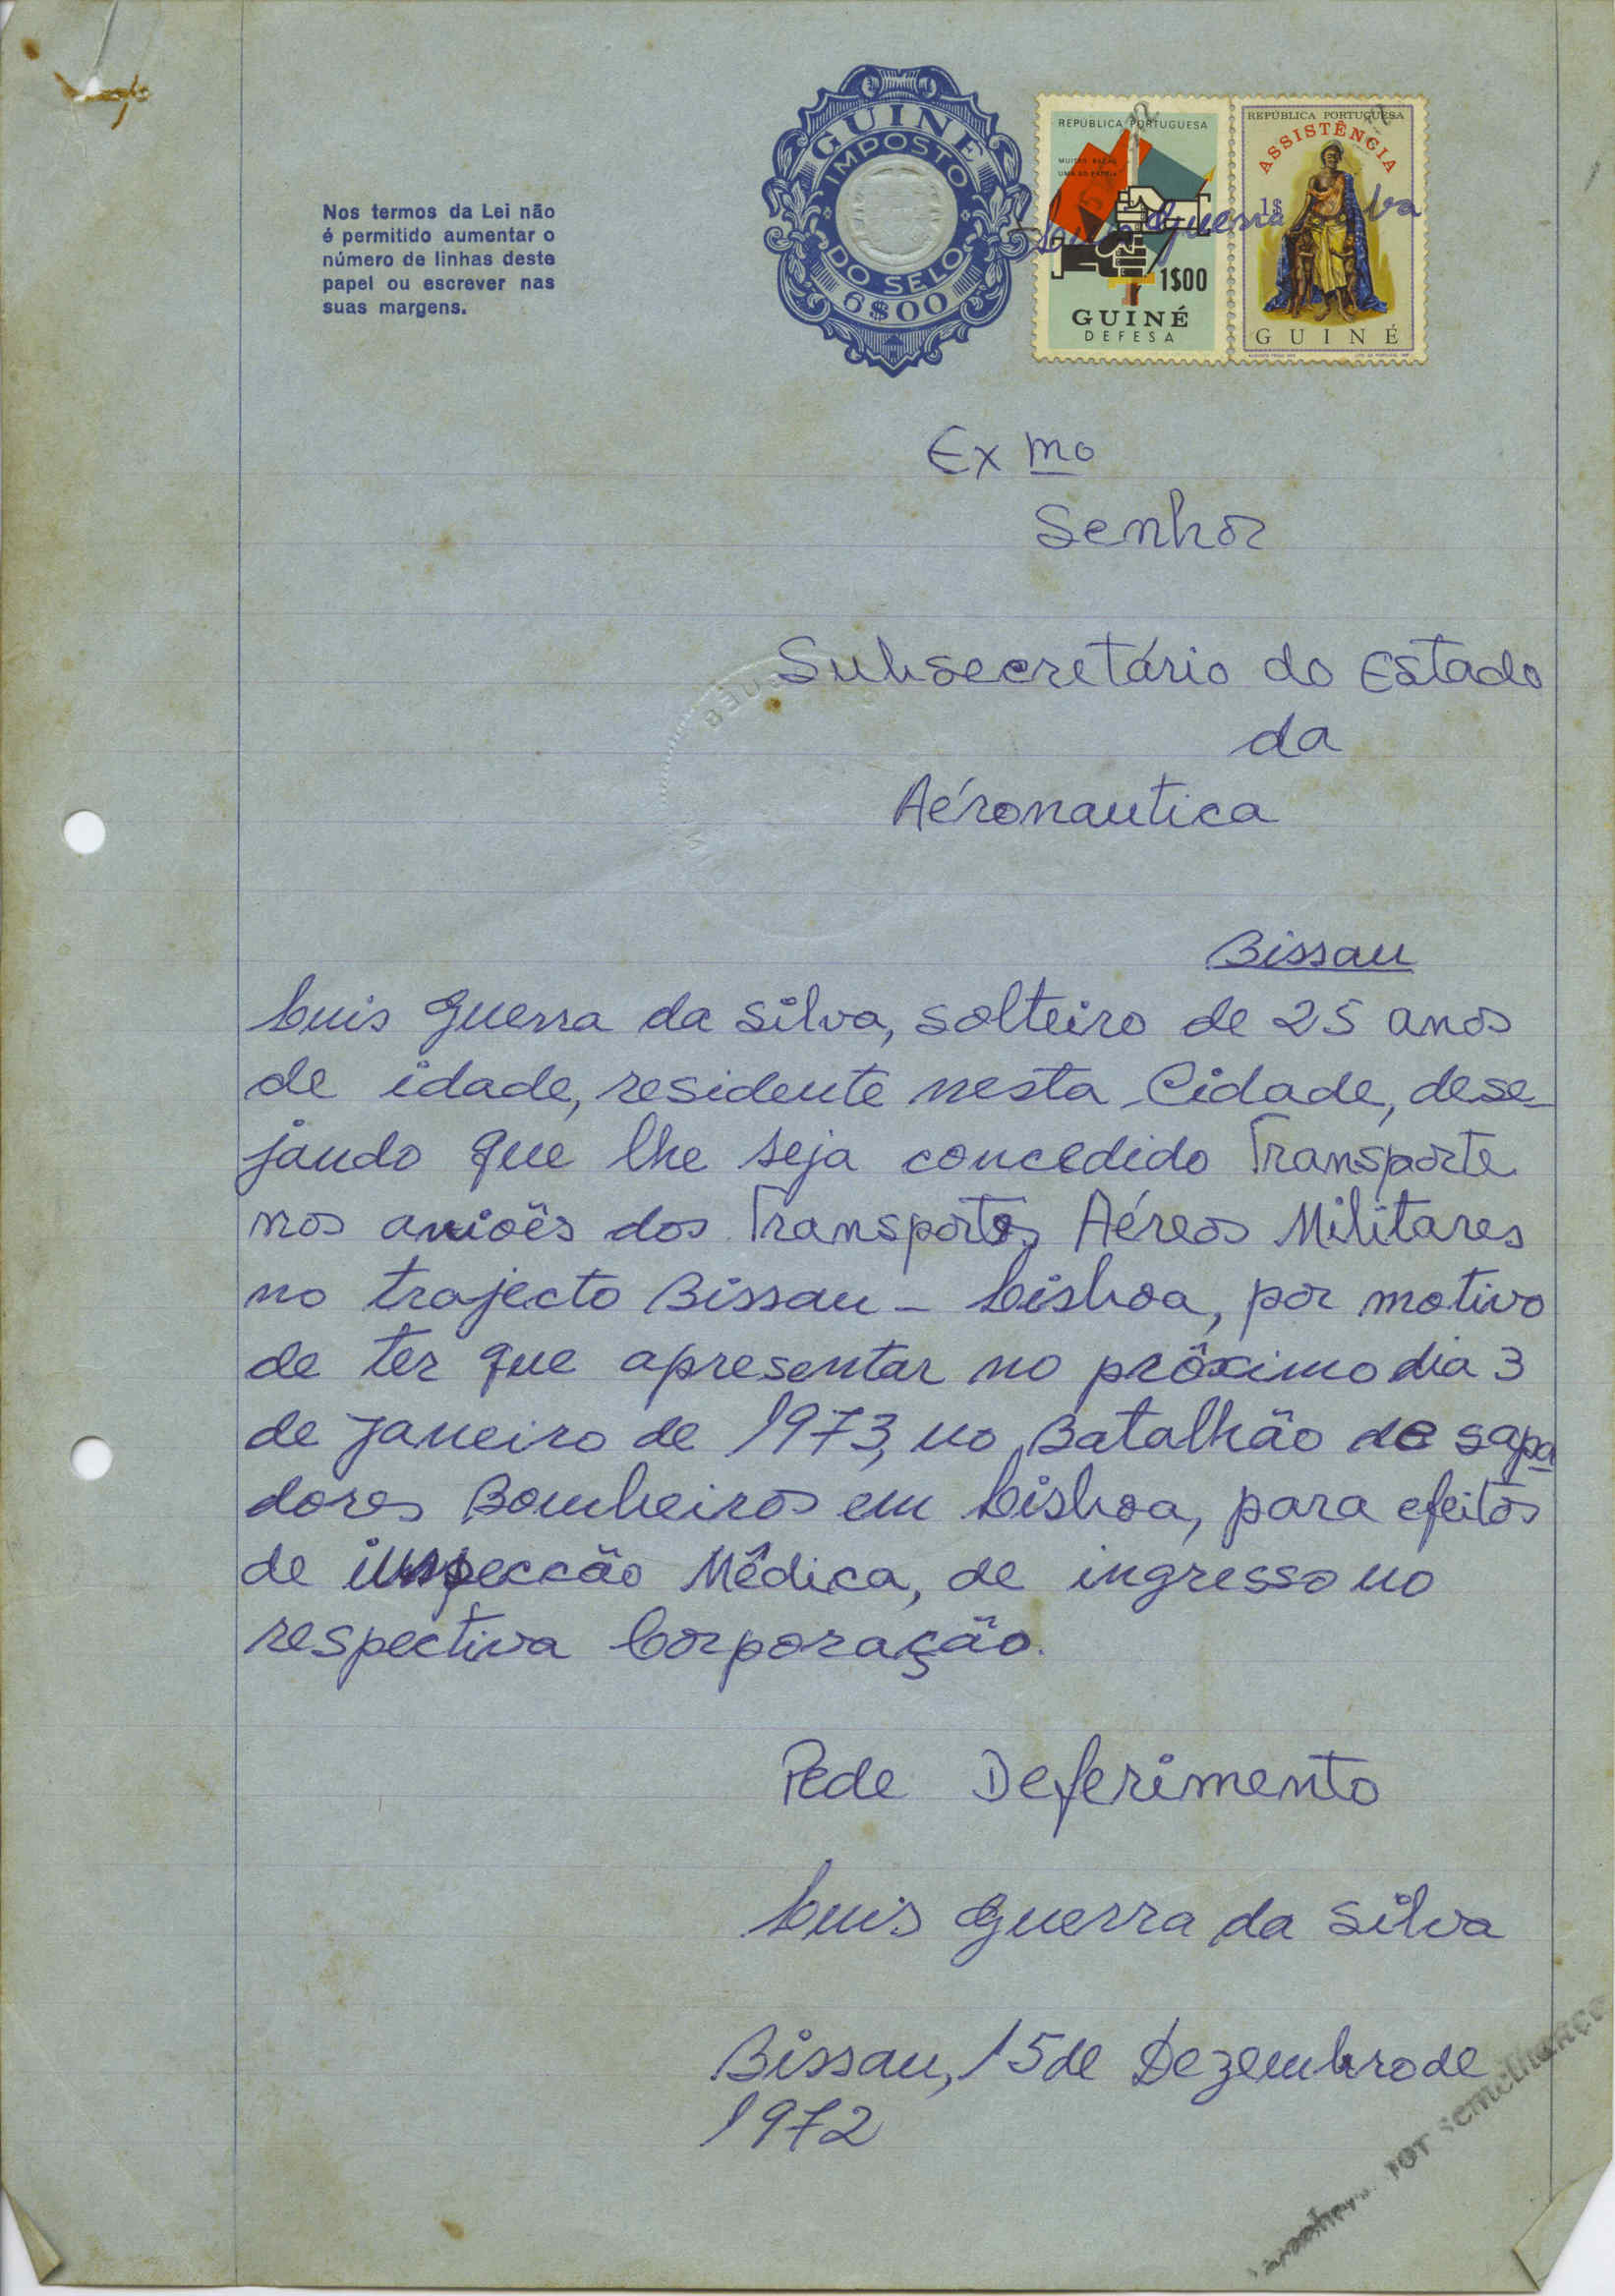 Nos termos da Lei não
é permitido aumentar o
número de linhas deste
papel ou escrever nas
suas margens.
GUINÉ
IMPOSTO
DO SELO
6$00
REPÚBLICA PORTUGUESA
1$00
GUINÉ
DEFESA
REPÚBLICA PORTUGUESA
ASSISTÊNCIA
1$
GUINÉ
Guerra
Ex mo
Senhor
Subsecretário do Estado
da
Aéronautica
Bissau
Luis Guerra da Silva, solteiro de 25 anos
de idade, residente nesta Cidade, dese-
jando que lhe seja concedido Transporte
nos avioês dos Transportes Aéreos Militares
no trajecto Bissau - Lisboa, por motivo
de ter que apresentar no prôximo dia 3
de Janeiro de 1973, no Batalhão de sapa
dores Bombeiros em Lisboa, para efeitos
de inspeccão Mêdica, de ingresso no
respectiva Corporação.
Pede Deferimento
Luis Guerra da Silva
Bissau, 15 de Dezembro de
1972
por semelhança